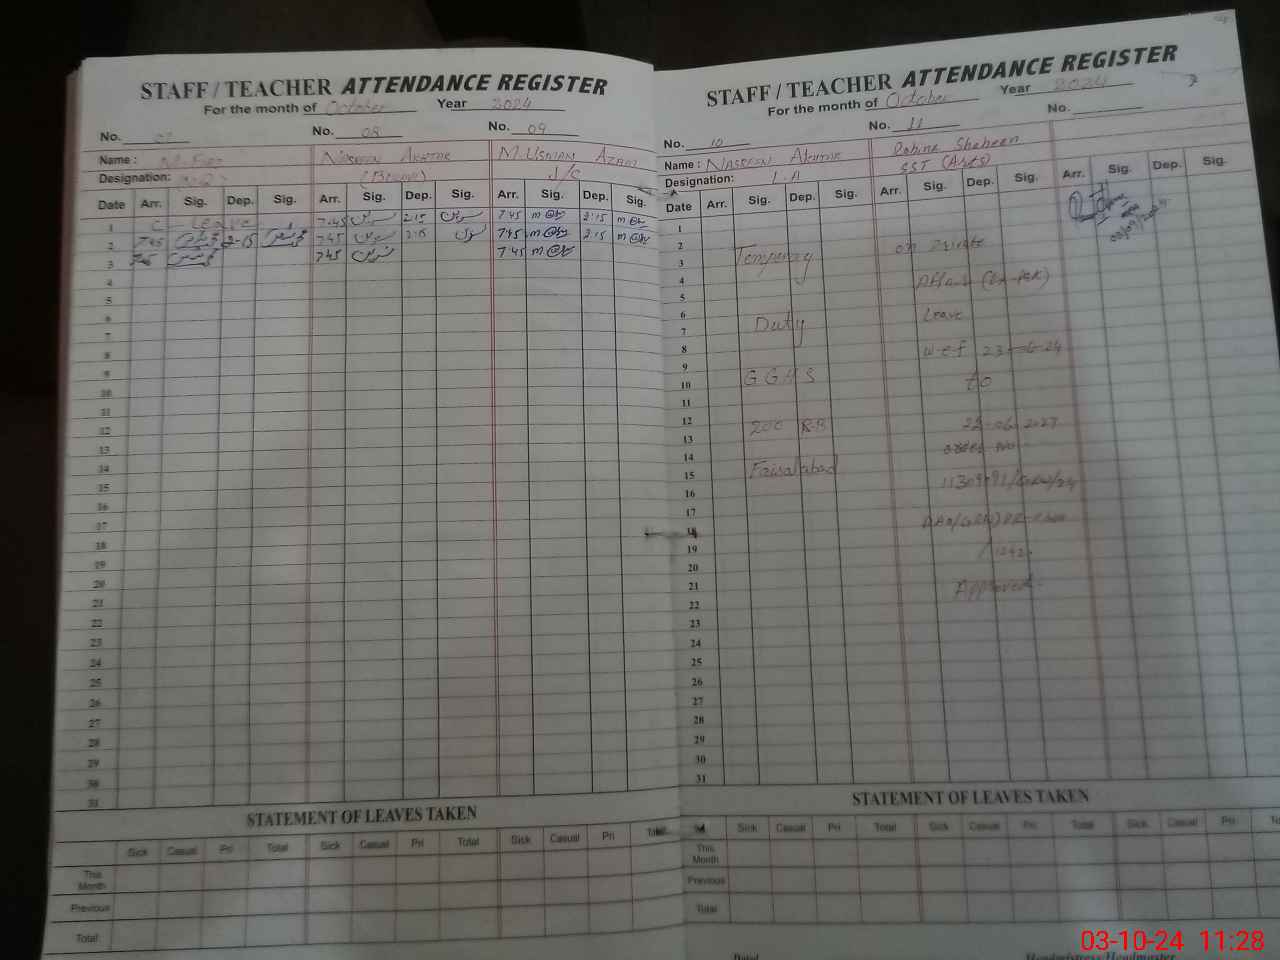 STAFF / TEACHER ATTENDANCE REGISTER
For the month of October Year 2024
No. 07 No. 08 No. 09
Name : Nasreen Akhtar M. Usman Azam
Designation: J/C
Date Arr. Sig. Dep. Sig. Arr. Sig. Dep. Sig. Arr. Sig. Dep. Sig.
1 C Leave 7:45 نسرین 2:15 نسرین 7:45 2:15
2 7:45 2-15 7:45 نسرین 2:15 7:45 2:15
3 7:45 7:45 نسرین 7:45
4
5
6
7
8
9
10
11
12
13
14
15
16
17
18
19
20
21
22
23
24
25
26
27
28
29
30
31
STATEMENT OF LEAVES TAKEN
Sick Casual Pri Total Sick Casual Pri Total Sick Casual Pri Total
This Month
Previous
Total
STAFF / TEACHER ATTENDANCE REGISTER
For the month of October Year 2024
No. 10 No. 11 No.
Name : Nasreen Akhtar Robina Shaheen
Designation: L.A SST (Arts)
Date Arr. Sig. Dep. Sig. Arr. Sig. Dep. Sig. Arr. Sig. Dep. Sig.
1
2
3 Temperary on Private
4
5
6 Leave
7 Duty
8 w-e-f 23-06-24
9
10 G G H S to
11
12 200 R-B 22-06-2027
13 order No
14
15 Faisalabad
16
17
18
19
20
21 Approved
22
23
24
25
26
27
28
29
30
31
STATEMENT OF LEAVES TAKEN
Sick Casual Pri Total Sick Casual Pri Total Sick Casual Pri
This Month
Previous
Total
Headmistress Headmaster
03-10-24 11:28